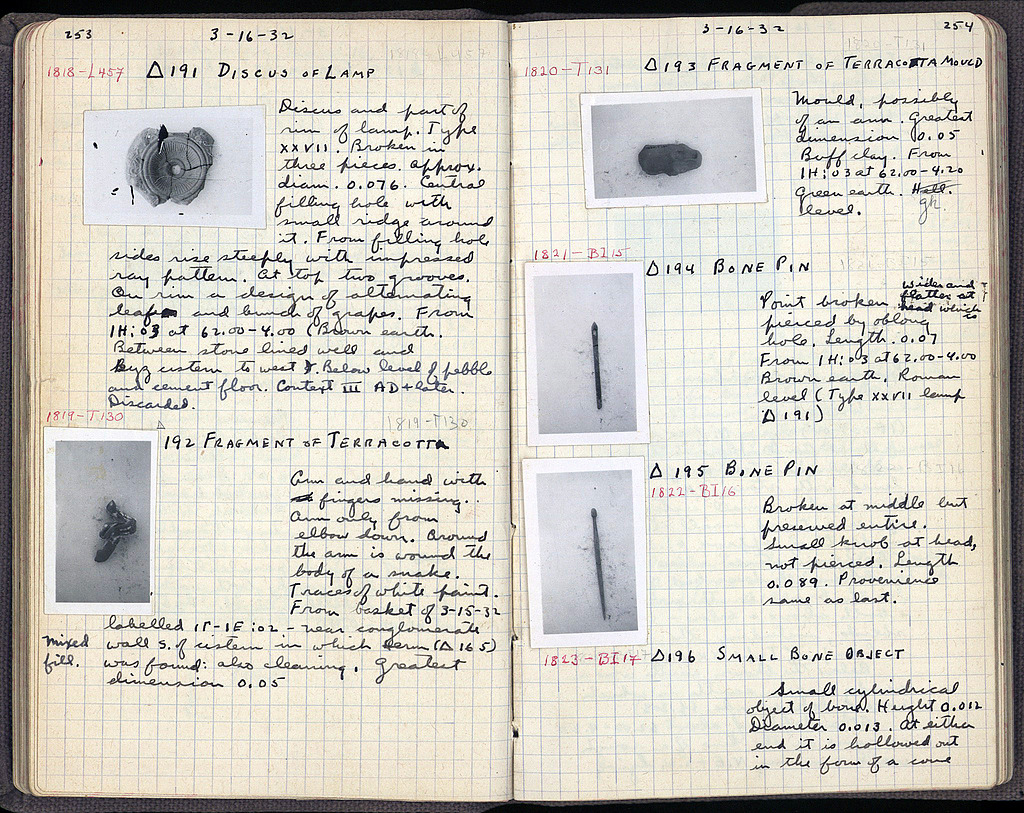 253
3-16-32
1818-L457
Δ191 DISCUS OF LAMP
Discus and part of
rim of lamp. Type
XXVII. Broken in
three pieces. Approx.
diam. 0.076. Central
filling hole with
small ridge around
it. From filling hole
sides rise steeply with impressed
ray pattern. At top two grooves.
On rim a design of alternating
leaf and bunch of grapes. From
1H:03 at 62.00-4.00 (Brown earth.
Between stone lined well and
Byz cistern to west). Below level of pebble
and cement floor. Context III AD + later.
Discarded.
1819-T130
1819-T130
Δ
192 FRAGMENT OF TERRACOTTA
Arm and hand with
fingers missing.
Arm only from
elbow down. Around
the arm is wound the
body of a snake.
Traces of white paint.
From basket of 3-15-32
labelled 1Γ-1E:02 - near conglomerate
mixed
fill.
wall S. of cistern in which (Δ165)
was found: also cleaning. Greatest
dimension 0.05
3-16-32
254
1820-T131
Δ193 FRAGMENT OF TERRACOTTA MOULD
Mould, possibly
of an arm. Greatest
dimension 0.05
Buff clay. From
1H:03 at 62.00-4.20
Green earth. Hell.
gk.
level.
1821-BI15
Δ194 BONE PIN
wider and
flatter at
Point broken head which is
pierced by oblong
hole. Length. 0.07
From 1H:03 at 62.00-4.00
Brown earth. Roman
level (Type XXVII lamp
Δ191)
Δ195 BONE PIN
1822-BI16
Broken at middle but
preserved entire.
Small knob at head,
not pierced. Length
0.089. Provenience
same as last.
1823-BI17
Δ196 SMALL BONE OBJECT
Small cylindrical
object of bone. Height 0.012
Diameter 0.013. At either
end it is hollowed out
in the form of a cone